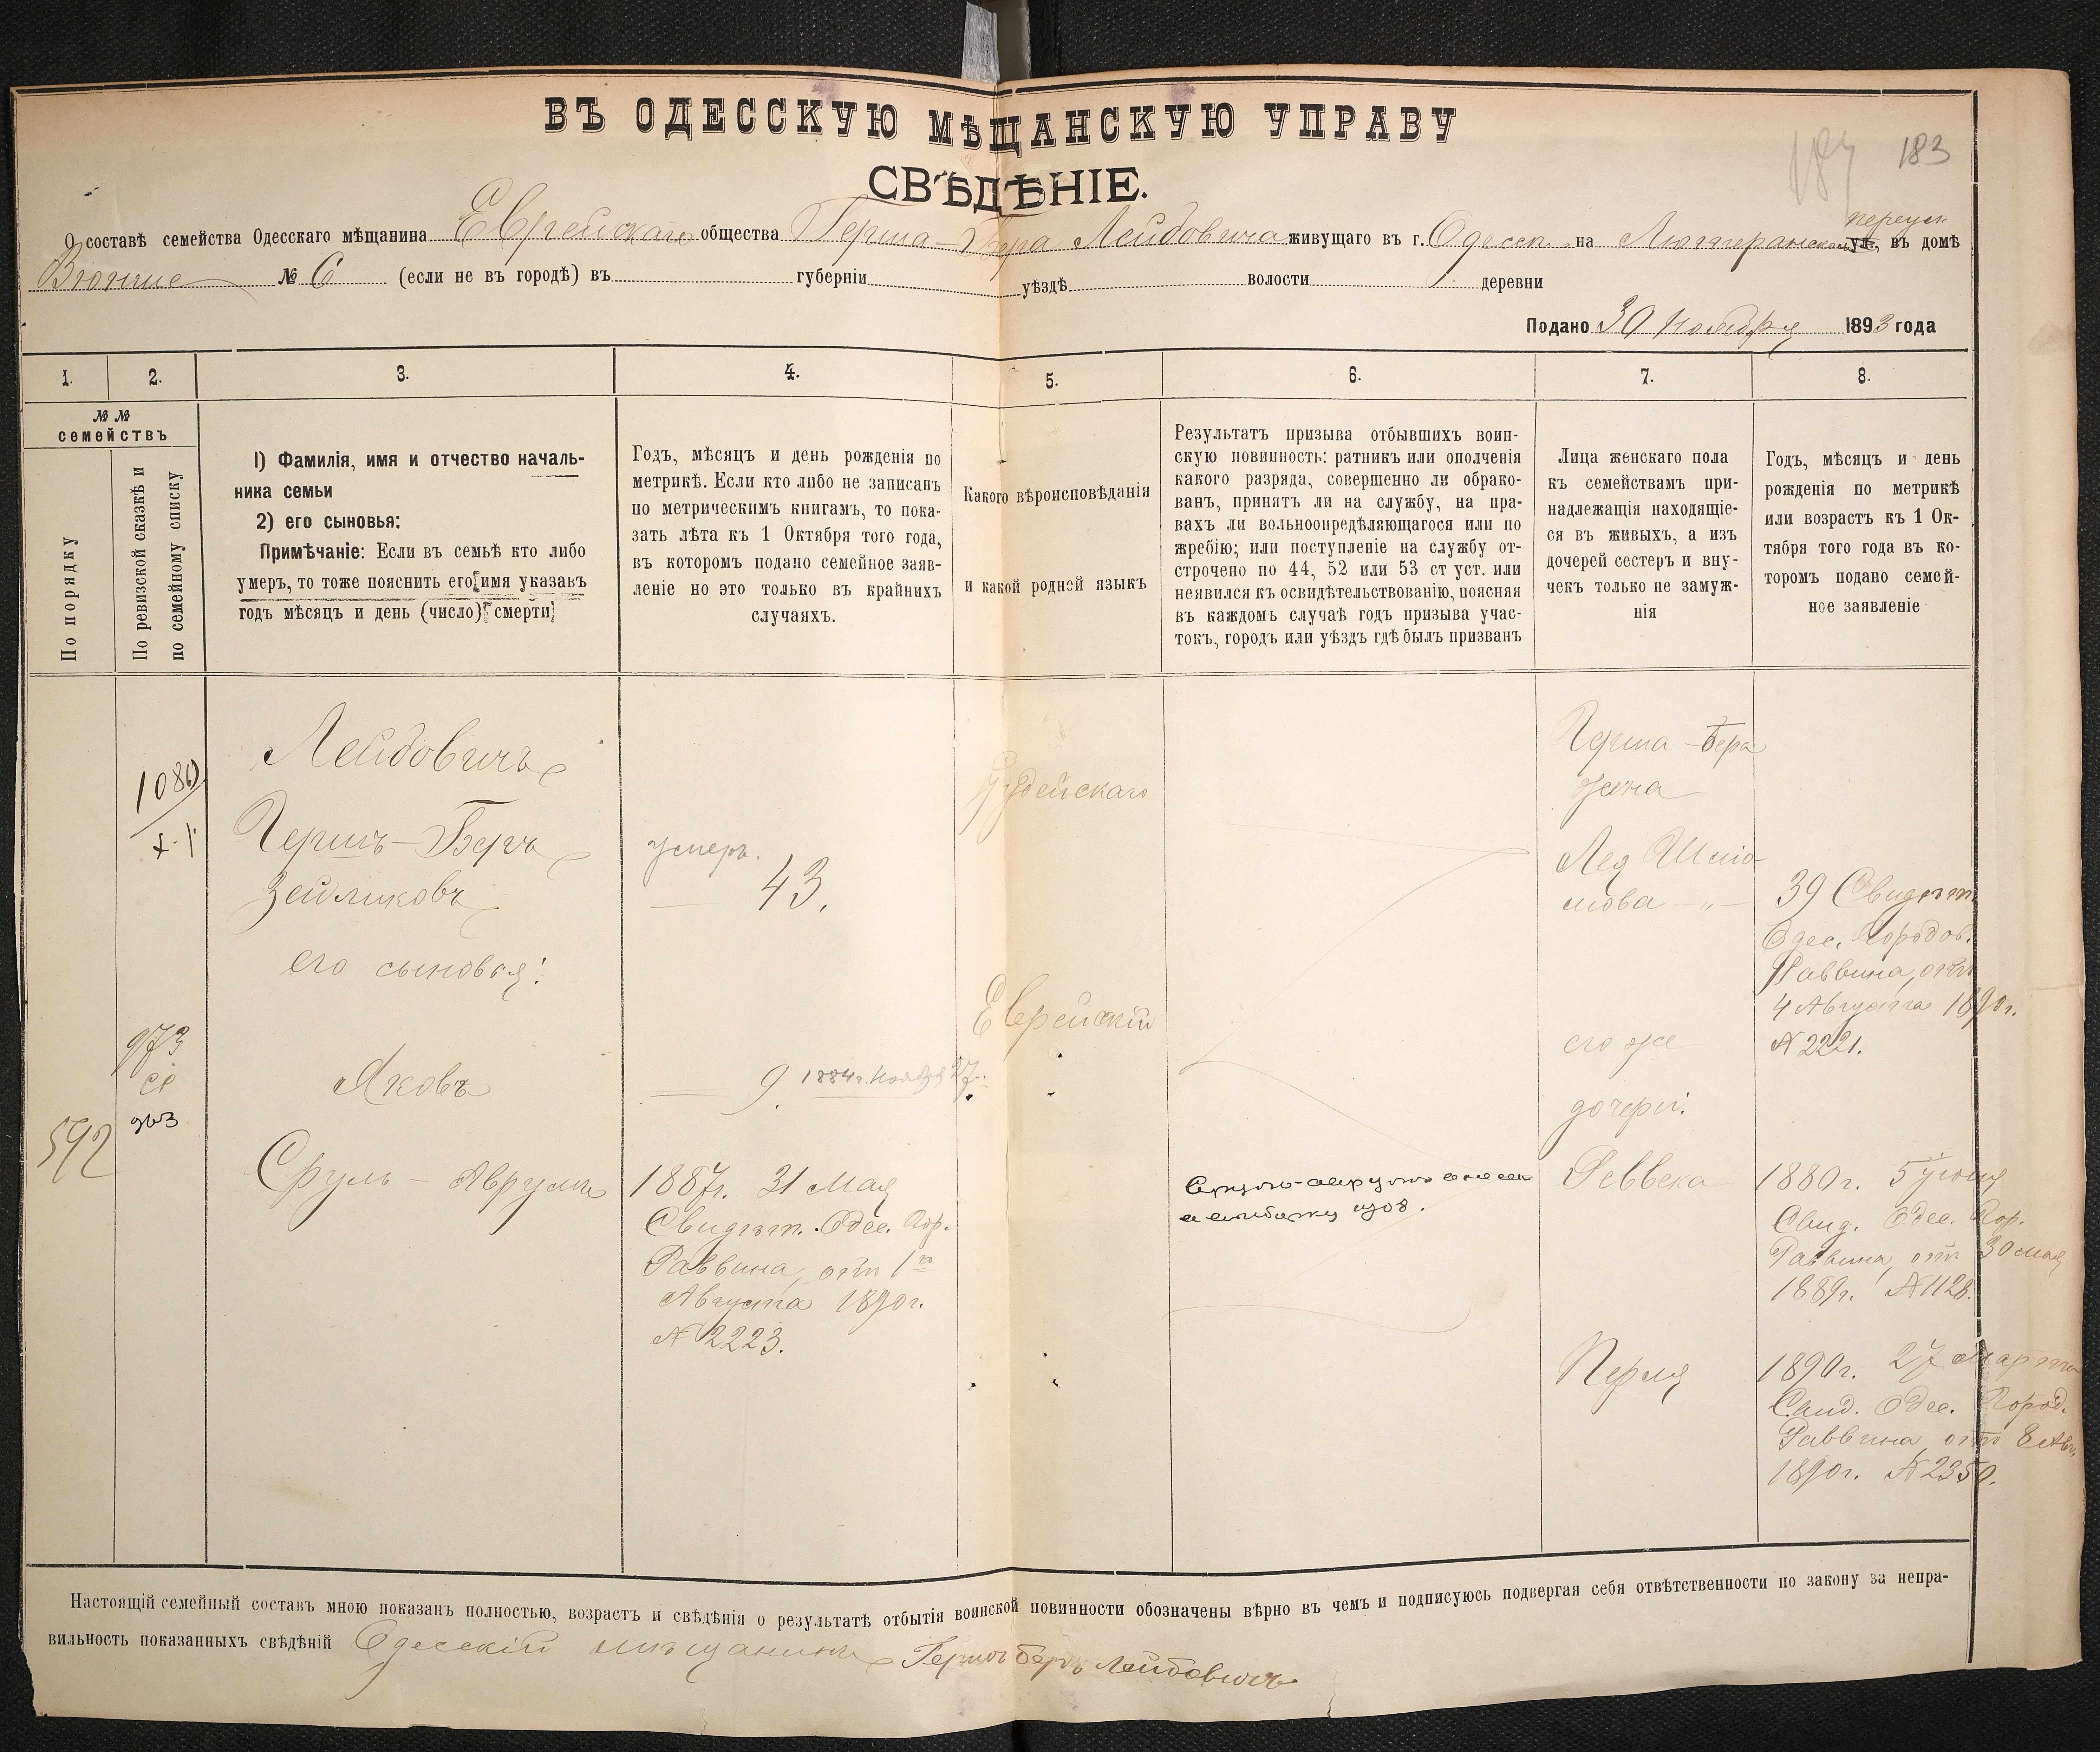 ВЪ ОДЕССКУЮ МѢЩАНСКУЮ УПРАВУ
СВѢДѢНІЕ.
183
О составѣ семейства Одесскаго мѣщанина Еврейскаго общества Герша-Бера Лейдовича живущаго въ г. Одессѣ на Лютеранском ул., въ домѣ
переул
№ 6 (если не въ городѣ) въ губерніи уѣздѣ волости деревни
Подано 30 Ноября 1893 года
1. 2. 3. 4. 5. 6. 7. 8.
№ №
семействъ
По порядку
По ревизской сказкѣ и
по семейному списку
1) Фамилія, имя и отчество началь-
ника семьи
2) его сыновья:
Примѣчаніе: Если въ семьѣ кто либо
умеръ, то тоже пояснить его имя указавъ
годъ мѣсяцъ и день (число) смерти
Годъ, мѣсяцъ и день рожденія по
метрикѣ. Если кто либо не записанъ
по метрическимъ книгамъ, то пока-
зать лѣта къ 1 Октября того года,
въ которомъ подано семейное заяв-
леніе но это только въ крайнихъ
случаяхъ.
Какого вѣроисповѣданія
и какой родной языкъ
Результатъ призыва отбывшихъ воин-
скую повинность: ратникъ или ополченія
какого разряда, совершенно ли обрако-
ванъ, принятъ ли на службу, на пра-
вахъ ли вольноопредѣляющагося или по
жребію; или поступленіе на службу от-
строчено по 44, 52 или 53 ст уст. или
неявился къ освидѣтельствованію, поясняя
въ каждомъ случаѣ годъ призыва учас-
токъ, городъ или уѣздъ гдѣ былъ призванъ
Лица женскаго пола
къ семействамъ при-
надлежащія находящіе-
ся въ живыхъ, а изъ
дочерей сестеръ и вну-
чекъ только не замуж-
нія
Годъ, мѣсяцъ и день
рожденія по метрикѣ
или возрастъ къ 1 Ок-
тября того года въ ко-
торомъ подано семей-
ное заявленіе
1080
973
963
592
Лейдовичъ
Гершъ-Беръ
Зейликовъ
его сыновья:
Яковъ
Сруль - Аврумъ
умеръ.
43.
9. 1884 г. Ноября 27
1887г. 31 Мая
Свидѣт. Одес. Гор.
Раввина, отъ 1го
Августа 1890г.
№ 2223.
Іудейскаго
Еврейскій
Сруль-Аврумъ
Герша-Бера
жена
Лея Шміо-
мова - „ -
его же
дочери:
Реввека
Перля
39 Свидѣт.
Одес. Городов.
Раввина, отъ
4 Августа 1890г.
№ 2221.
1880г. 5 Іюня
Свид. Одес. Гор.
Раввина, отъ 30 мая
1889г. № 1128.
1890г. 27 Марта
Свид. Одес. Город.
Раввина, отъ 8 Авг.
1890г. № 2350.
Настоящій семейный составъ мною показанъ полностью, возрастъ и свѣдѣнія о результатѣ отбытія воинской повинности обозначены вѣрно въ чемъ и подписуюсь подвергая себя отвѣтственности по закону за непра-
вильность показанныхъ свѣдѣній Одесскій мѣщанинъ Гершъ Беръ Лейдовичъ